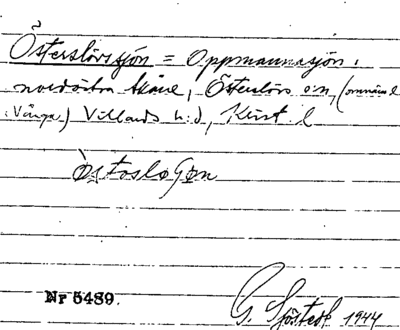 Österslövssjön = Oppmannasjön i
nordöstra Skåne, Österslövs s:n, (
Vånga) Villands h:d, Krist. l
Nr 5489.
G. Sjöstedt 1944